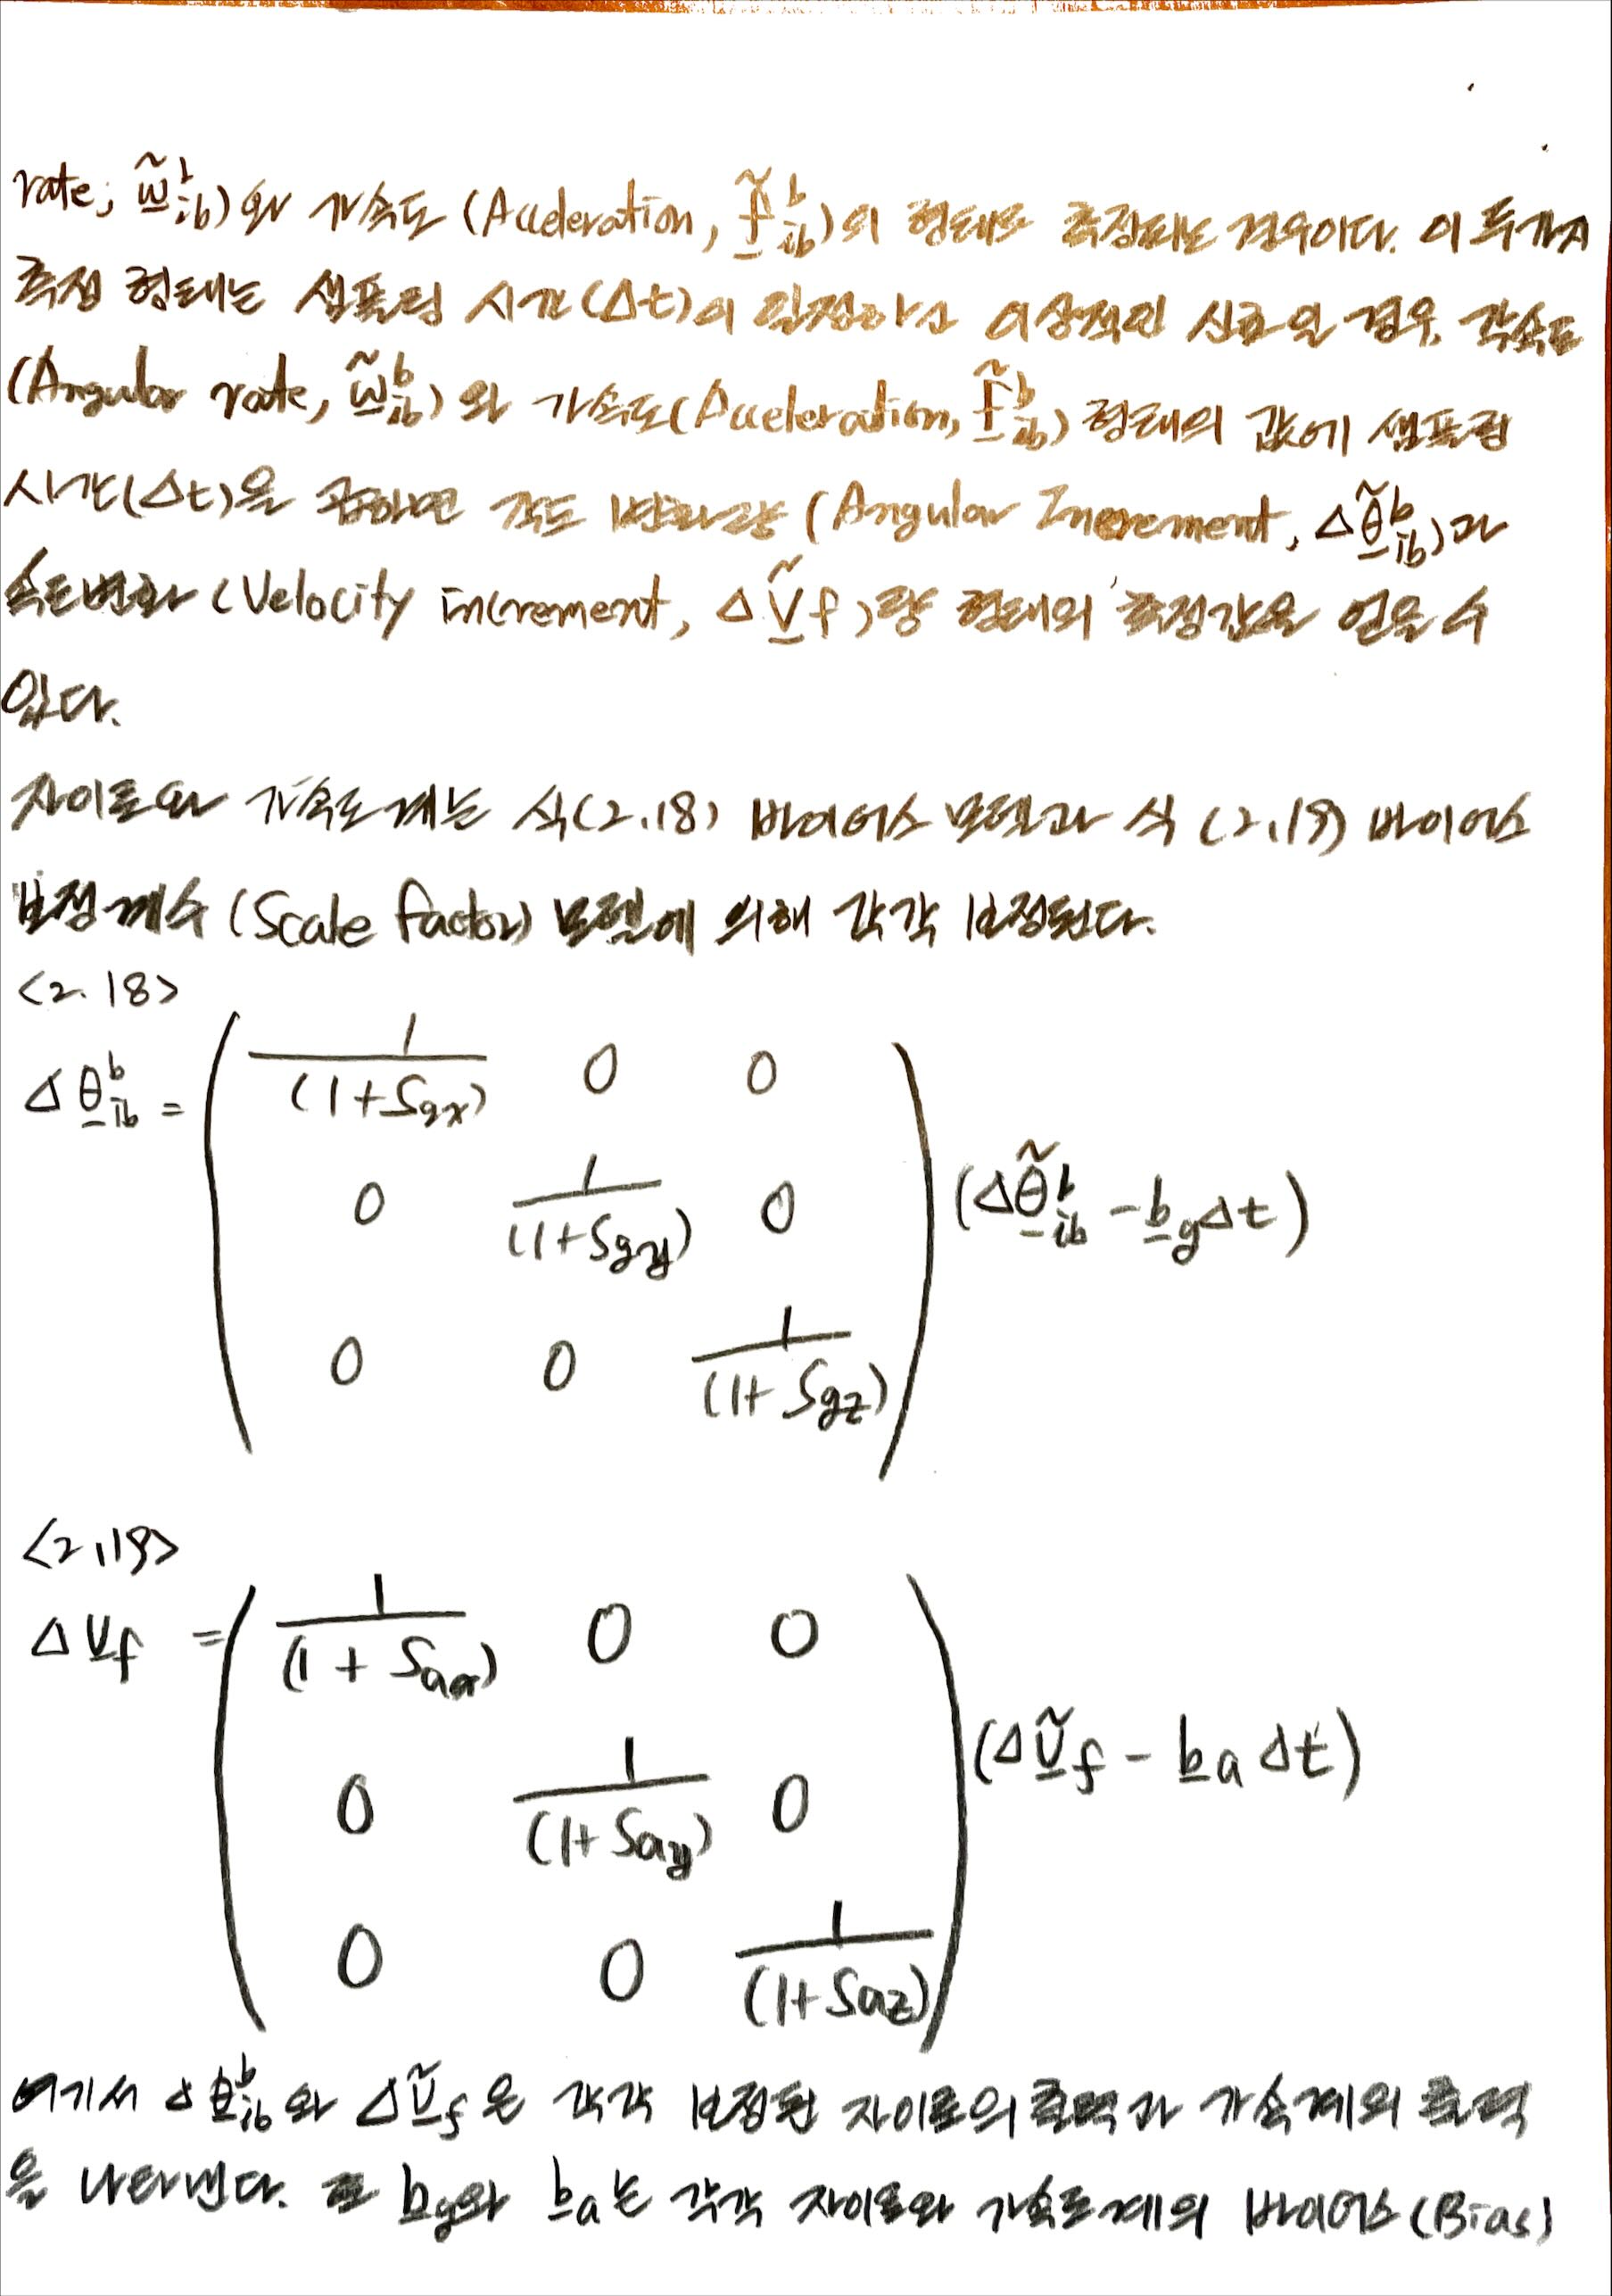 rate, ω̲̃ᵇᵢᵦ)와 가속도 (Acceleration, f̲̃ᵇᵢᵦ)의 형태로 측정되는 경우이다. 이 두가지
측정 형태는 샘플링 시간(Δt)이 일정하고 이상적인 신호일 경우, 각속도
(Angular rate, ω̲̃ᵇᵢᵦ)와 가속도(Acceleration, f̲̃ᵇᵢᵦ) 형태의 값에 샘플링
시간(Δt)을 곱하면 각도 변화량 (Angular Increment, Δθ̲̃ᵇᵢᵦ)과
속도변화 (Velocity increment, ΔṼ̲f)량 형태의 측정값을 얻을 수
있다.
자이로와 가속도계는 식(2.18) 바이어스 모델과 식 (2.19) 바이어스
보정계수 (Scale factor) 모델에 의해 각각 보정된다.
<2.18>
Δθ̲ᵇᵢᵦ = ( 1/(1+Sgx) 0 0
0 1/(1+Sgy) 0
0 0 1/(1+Sgz) ) (Δθ̲̃ᵇᵢᵦ - b̲gΔt)
<2.19>
ΔV̲f = ( 1/(1+Sax) 0 0
0 1/(1+Say) 0
0 0 1/(1+Saz) ) (ΔṼ̲f - b̲aΔt)
여기서 Δθ̲ᵇᵢᵦ와 ΔṼ̲f은 각각 보정된 자이로의 출력과 가속계의 출력
을 나타낸다. b̲g와 b̲a는 각각 자이로와 가속도계의 바이어스(Bias)